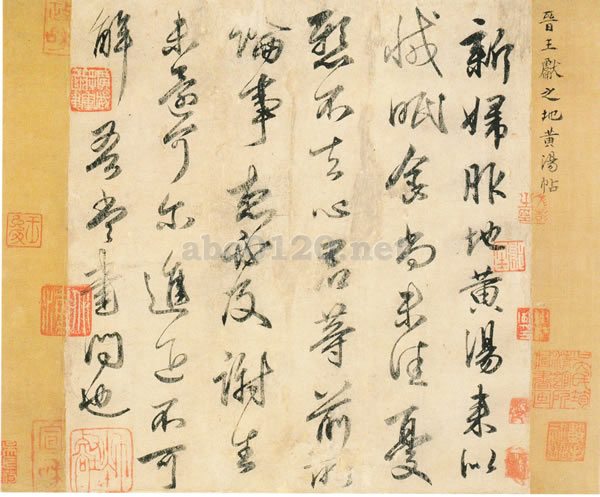 晉王獻之地黃湯帖
新婦服地黃湯來似
減眠食尚未佳憂
懸不去心君等前所
論事想必及謝生
未還可爾進退不可
解吾當書問也
宣和